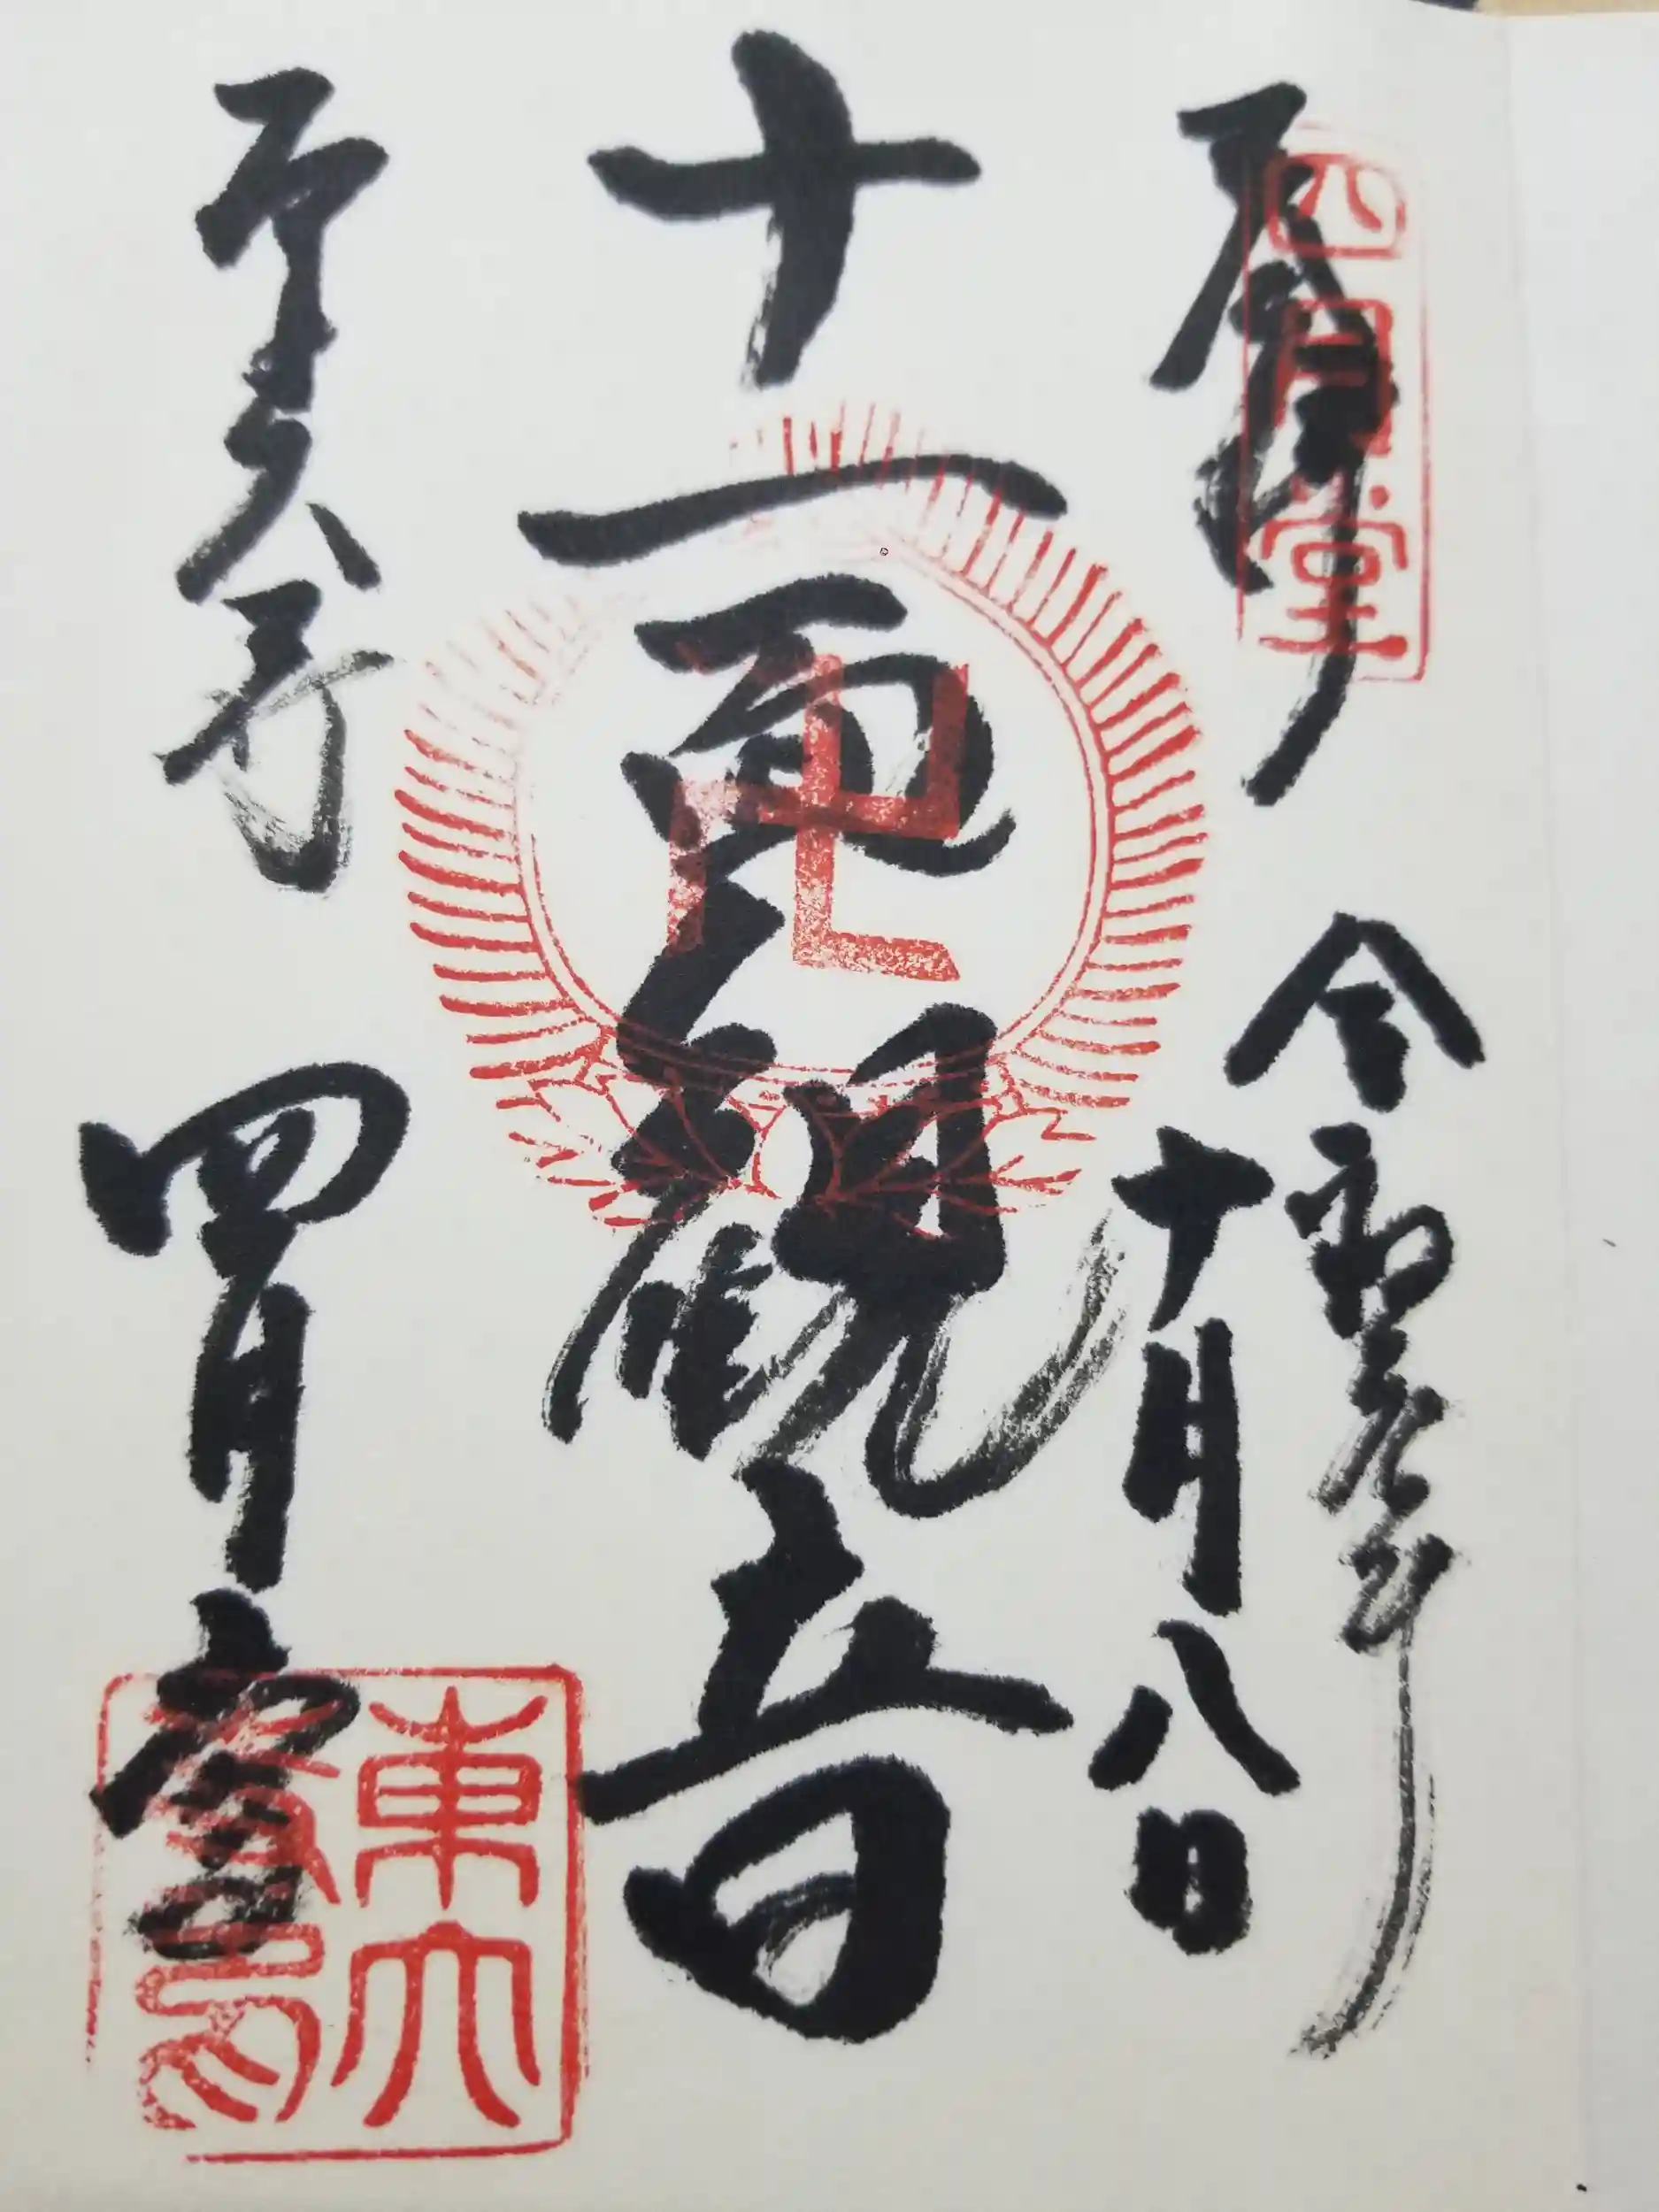 奉拝
四月堂
令和 年
十月八日
十一面観音
卍
東大寺 四月堂
東大
寺印